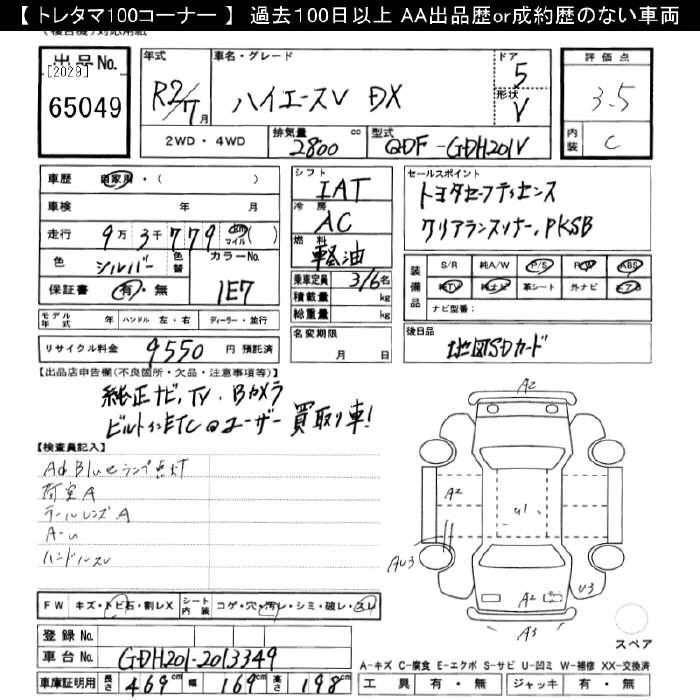 【 トレタマ100コーナー 】 過去100日以上 AA出品歴or成約歴のない車両
出品No.
[2029]
65049
年式 R2/7月
車名・グレード ハイエースV DX
ドア 5
形状 V
評価点 3.5
内装 C
2WD ・ 4WD
排気量 2800 cc
型式 QDF-GDH201V
車歴 自家用 ・ ( )
車検 年 月
走行 9万3千779 km マイル ( )
色 シルバー
色替
カラーNo. 1E7
保証書 有 ・ 無
シフト IAT
冷房 AC
燃料 軽油
乗車定員 3/6名
積載量 kg
総重量 kg
セールスポイント
トヨタセーフティセンス
クリアランスソナー, PKSB
装備品
S/R 純A/W P/S P/W ABS
純TV 純ナビ 革シート 外ナビ エアB
ナビ型番:
モデル年式 年 ハンドル 左・右 ディーラー・並行
リサイクル料金 9550 円 預託済
名変期限 月 日
後日品 地図SDカード
【出品店申告欄(不良箇所・欠品・注意事項等)】
純正ナビ, TV, Bカメラ
ビルトインETC ユーザー買取り車!
【検査員記入】
Ad Blueランプ点灯
荷室A
テールレンズA
A-u
ハンドルスレ
A2
A2
U1
AU3
U3
A2
A3
スペア
FW キズ・トビ石・割レX
シート内装 コゲ・穴・汚レ・シミ・破レ・スレ
登録No.
車台No. GDH201-2013349
車庫証明用 長さ 469cm 幅 169cm 高さ 198cm
A-キズ C-腐食 E-エクボ S-サビ U-凹ミ W-補修 XX-交換済
工具 有・無 ジャッキ 有・無